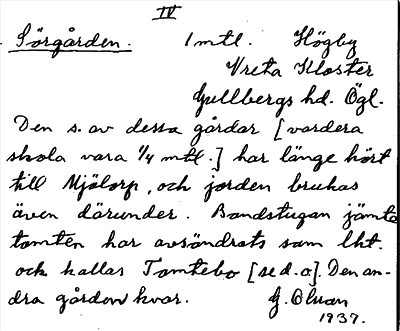 IV
Sörgården. 1 mtl. Högby
Vreta Kloster
Gullbergs hd. Ögl.
Den s. av dessa gårdar [vardera
skola vara 1/4 mtl.] har länge hört
till Mjölorp, och jorden brukas
även därunder. Bondstugan jämte
tomten har avsöndrats som lht.
och kallas Tomtebo [se d.o]. Den an-
dra gården kvar. G. Olson
1937.